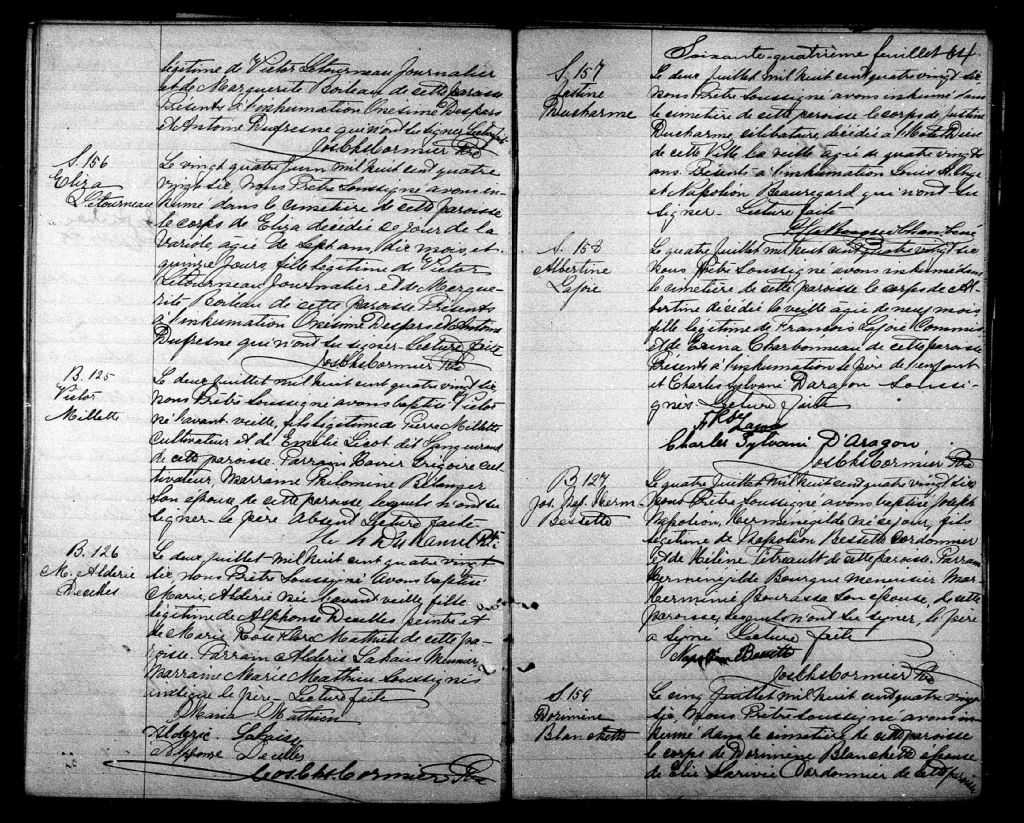 légitime de Victor Letourneau Journalier
et de Marguerite Borleau de cette paroisse
Présents à l'inhumation Onésime Despars
et Antoine Dufresne qui n'ont su signer Lecture faite
Jos Chs Cormier Ptre
S. 156
Eliza
Letourneau
Le vingt quatre Juin mil huit cent quatre
vingt six, Nous Prêtre Soussigné avons in-
humé dans le cimetière de cette paroisse
le corps de Eliza décédée ce jour de la
variole, agée de Sept ans, dix mois et
quinze Jours, fille légitime de Victor
Letourneau Journalier et de Margue-
rite Borleau de cette paroisse Présents
à l'inhumation Onésime Despars et Antoine
Dufresne qui n'ont su signer - Lecture faite
Jos Chs Cormier Ptre
B. 125
Victor
Millette
Le deux Juillet mil huit cent quatre vingt six
nous Prêtre Soussigné avons baptisé Victor
né l'avant veille, fils légitime de Pierre Millette
Cultivateur et de Emelie Licot dit Sanguerand
de cette paroisse. Parrain Xavier Grégoire cul-
tivateur, Marraine Philomine Bélanger
Son épouse de cette paroisse lesquels n'ont su
signer - le père Absent Lecture faite
B. 126
M. Alderie
Decelles
Le deux juillet mil huit cent quatre vingt
six, nous Prêtre Soussigné avons baptisé
Marie, Alderie née l'avant veille, fille
légitime de Alphonse Decelles peintre et
de Marie Rose Mathieu de cette pa-
roisse. Parrain Alderic Lahaise Meunier,
Marraine Marie Mathieu Soussignés
le père, Lecture faite
Maria Mathieu
Alderic Lahaise
Alphonse Decelles
Jos Chs Cormier Ptre
Soixante-quatrième feuillet 64
S. 157
Justine
Ducharme
Le deux Juillet mil huit cent quatre vingt six
nous Prêtre Soussigné avons inhumé dans
le cimetière de cette paroisse le corps de Justine
Ducharme, célibataire, décédée à l'Hotel Dieu
de cette Ville la veille agée de quatre vingt
ans. Présents à l'inhumation Louis H. Ange
et Napoléon Beauregard qui n'ont su
signer - Lecture faite
S. 158
Albertine
Lajoie
Le quatre Juillet mil huit cent quatre vingt six
nous Prêtre Soussigné avons inhumé dans
le cimetière de cette paroisse le corps de Al-
bertine décédée la veille agée de neuf mois
fille légitime de Francois Lajoie Commis
et de Exina Charbonneau de cette paroisse
Présents à l'inhumation le père de l'enfant
et Charles Sylvani Daragon Soussi-
gnés - Lecture faite
Lajoie
Charles Sylvani D'Aragon
Jos Chs Cormier Ptre
B. 127
Jos. Nap. Herm.
Bessette
Le quatre Juillet mil huit cent quatre vingt six
Nous Prêtre Soussigné avons baptisé Joseph
Napoléon, Herménégilde né ce jour, fils
légitime de Napoléon Bessette Cordonnier
et de Hélène Tétrault de cette paroisse. Parrain
Herménégilde Bourque menuisier Mar-
Herminie Bourassa Son épouse, de cette
paroisse, lesquels n'ont su signer, le père
a signé Lecture faite
Napoléon Bessette
Jos Chs Cormier Ptre
S. 159
Dorimène
Blanchette
Le cinq Juillet mil huit cent quatre vingt
six, Nous Prêtre Soussigné avons in-
humé dans le cimetière de cette paroisse
le corps de Dorimène Blanchette épouse
de Elie Larivée Cordonnier de cette paroisse